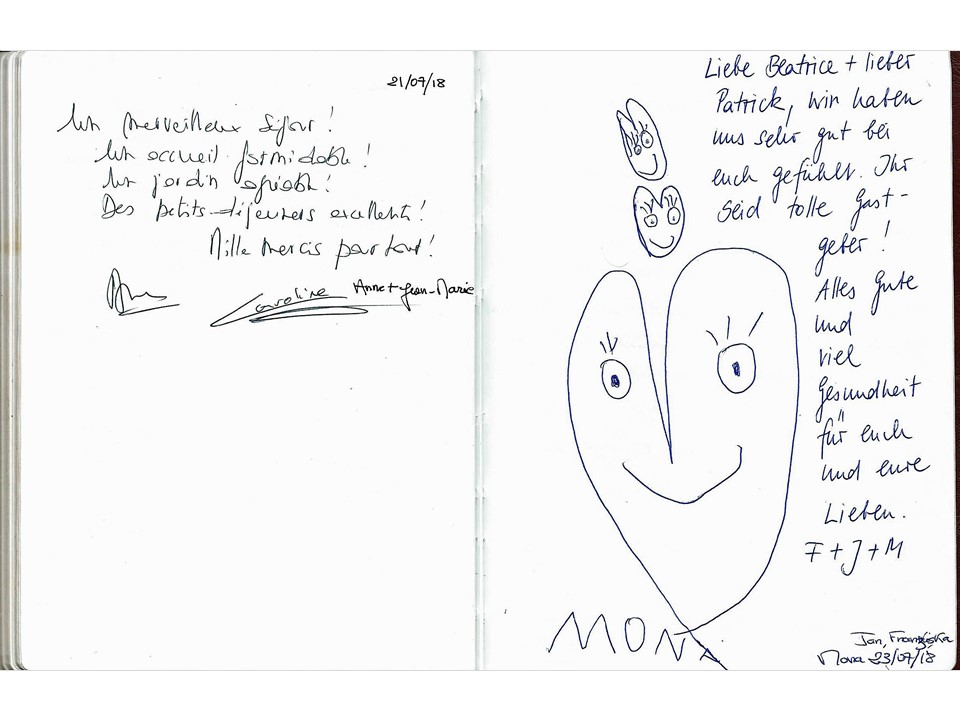 21/07/18
Un merveilleux séjour !
Un accueil formidable !
Un jardin agréable !
Des petits-déjeuners excellents !
Mille mercis pour tout !
Caroline
Anne + Jean-Marie
Liebe Beatrice + lieber
Patrick, wir haben
uns sehr gut bei
euch gefühlt. Ihr
seid tolle Gast-
geber !
Alles Gute
und
viel
Gesundheit
für euch
und eure
Lieben.
F + J + M
MONA
Jan, Franziska
Mona 23/07/18